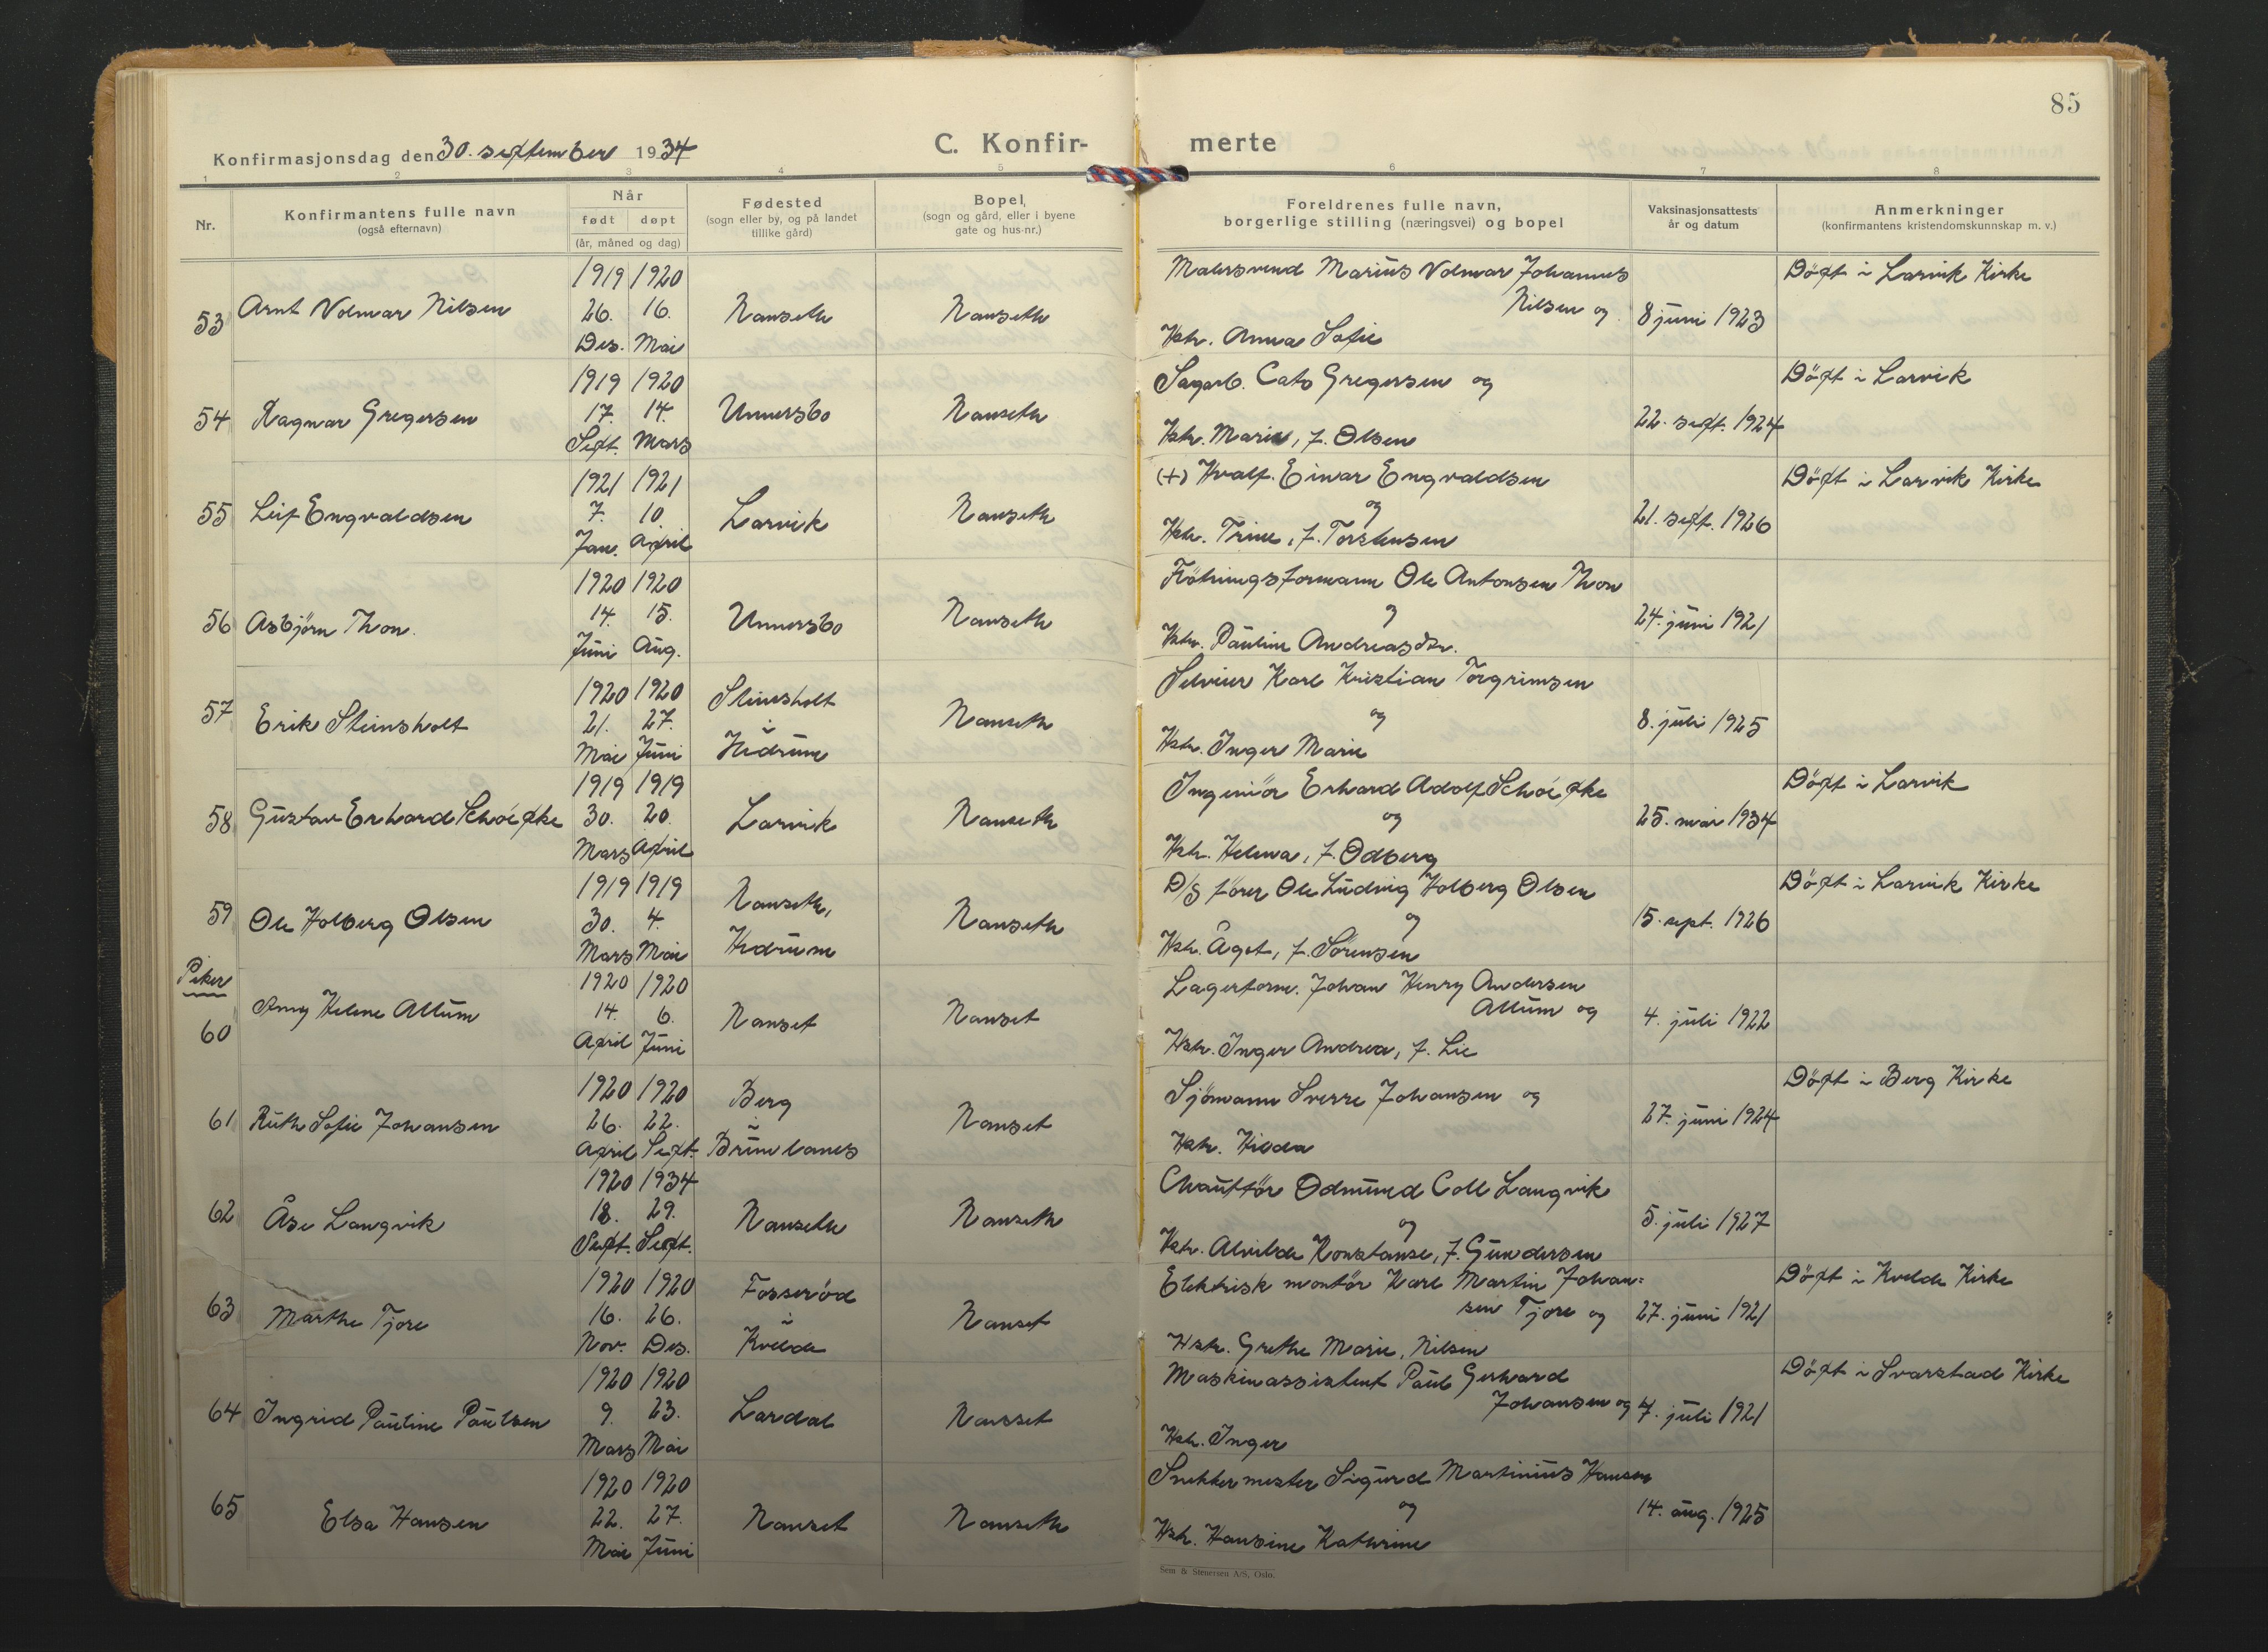 85
C. Konfir- merte
Konfirmasjonsdag den 30. september 1934
1 2 3 4 5 6 7 8
Nr.
Konfirmantens fulle navn
(også efternavn)
Når
født døpt
(år, måned og dag)
Fødested
(sogn eller by, og på landet
tillike gård)
Bopel,
(sogn og gård, eller i byene
gate og hus-nr.)
Foreldrenes fulle navn,
borgerlige stilling (næringsvei) og bopel
Vaksinasjonsattests
år og datum
Anmerkninger
(konfirmantens kristendomskunnskap m. v.)
1919 1920 Malersvend Marius Volmar Johannes Döpt i Larvik Kirke
53 Arnt Volmar Nilsen 26. 16. Nanseth Nanseth Nilsen og 8 juni 1923
Des. Mai Hstr. Anna Sofie
1919 1920 Sagarb. Cato Gregersen og Döpt i Larvik
54 Ragnar Gregersen 17. 14. Unnersbo Nanseth 22. sept. 1924
Sept. Mars Hstr. Marie, f. Olsen
1921 1921 (+) Hvalf. Einar Engvaldsen Döpt i Larvik Kirke
55 Leif Engvaldsen 7. 10. Larvik Nanseth og 21. sept. 1926
Jan. April Hstr. Trine, f. Torstensen
1920 1920 Flötningsformann Ole Antonsen Thon
56 Asbjörn Thon. 14. 15. Unnersbo Nanseth og 24. juni 1921
Juni Aug. Hstr. Pauline Andreasdtr.
1920 1920 Steinsholt Selveier Karl Kristian Torgrimsen
57 Erik Steinsholt 21. 27. i Nanseth og 8. juli 1925
Mai Juni Hedrum Hstr. Inger Marie
1919 1919 Ingeniör Erhard Adolf Schöepke Döpt i Larvik
58 Gustav Erhard Schöepke 30. 20. Larvik Nanseth og 25. mai 1934
Mars April Hstr. Helena, f. Odberg
1919 1919 Nanseth, D/S förer Ole Ludvig Holberg Olsen Döpt i Larvik Kirke
59 Ole Holberg Olsen 30. 4. Nanseth og 15. sept. 1926
Mars Mai Hedrum Hstr. Ågot, f. Sörensen
Piker
1920 1920 Lagerform. Johan Henry Andersen
60 Amy Helene Allum 14. 6. Nanset Nanset Allum og 4. juli 1922
April Juni Hstr. Inger Andrea, f. Lie
1920 1920 Berg Sjömann Sverre Johansen og Döpt i Berg Kirke
61 Ruth Sofie Johansen 26. 22. i Nanset 27. juni 1924
April Sept. Brunlanes Hstr. Hilda
1920 1934 Chaufför Odmund Coll Langvik
62 Åse Langvik 18. 29. Nanseth Nanseth og 5. juli 1927
Sept. Sept. Hstr. Alvilde Konstanse, f. Gundersen
1920 1920 Fosseröd Elektrisk montör Karl Martin Johan= Döpt i Kvelde Kirke
63 Marthe Tjore 16. 26. i Nanset sen Tjore og 27. juni 1921
Nov. Des. Kvelde Hstr. Grethe Marie, Nilsen
1920 1920 Maskinassistent Paul Gerhard Döpt i Svarstad Kirke
64 Ingrid Pauline Paulsen 9. 23. Lardal Nanset Johansen og 7. juli 1921
Mars Mai Hstr. Inger
1920 1920 Snekkermester Sigurd Martinius Hansen
65 Elsa Hansen 22. 27. Nanset Nanseth og 14. aug. 1925
Mai Juni Hstr. Hansine Kathrine
Sem & Stenersen A/S, Oslo.